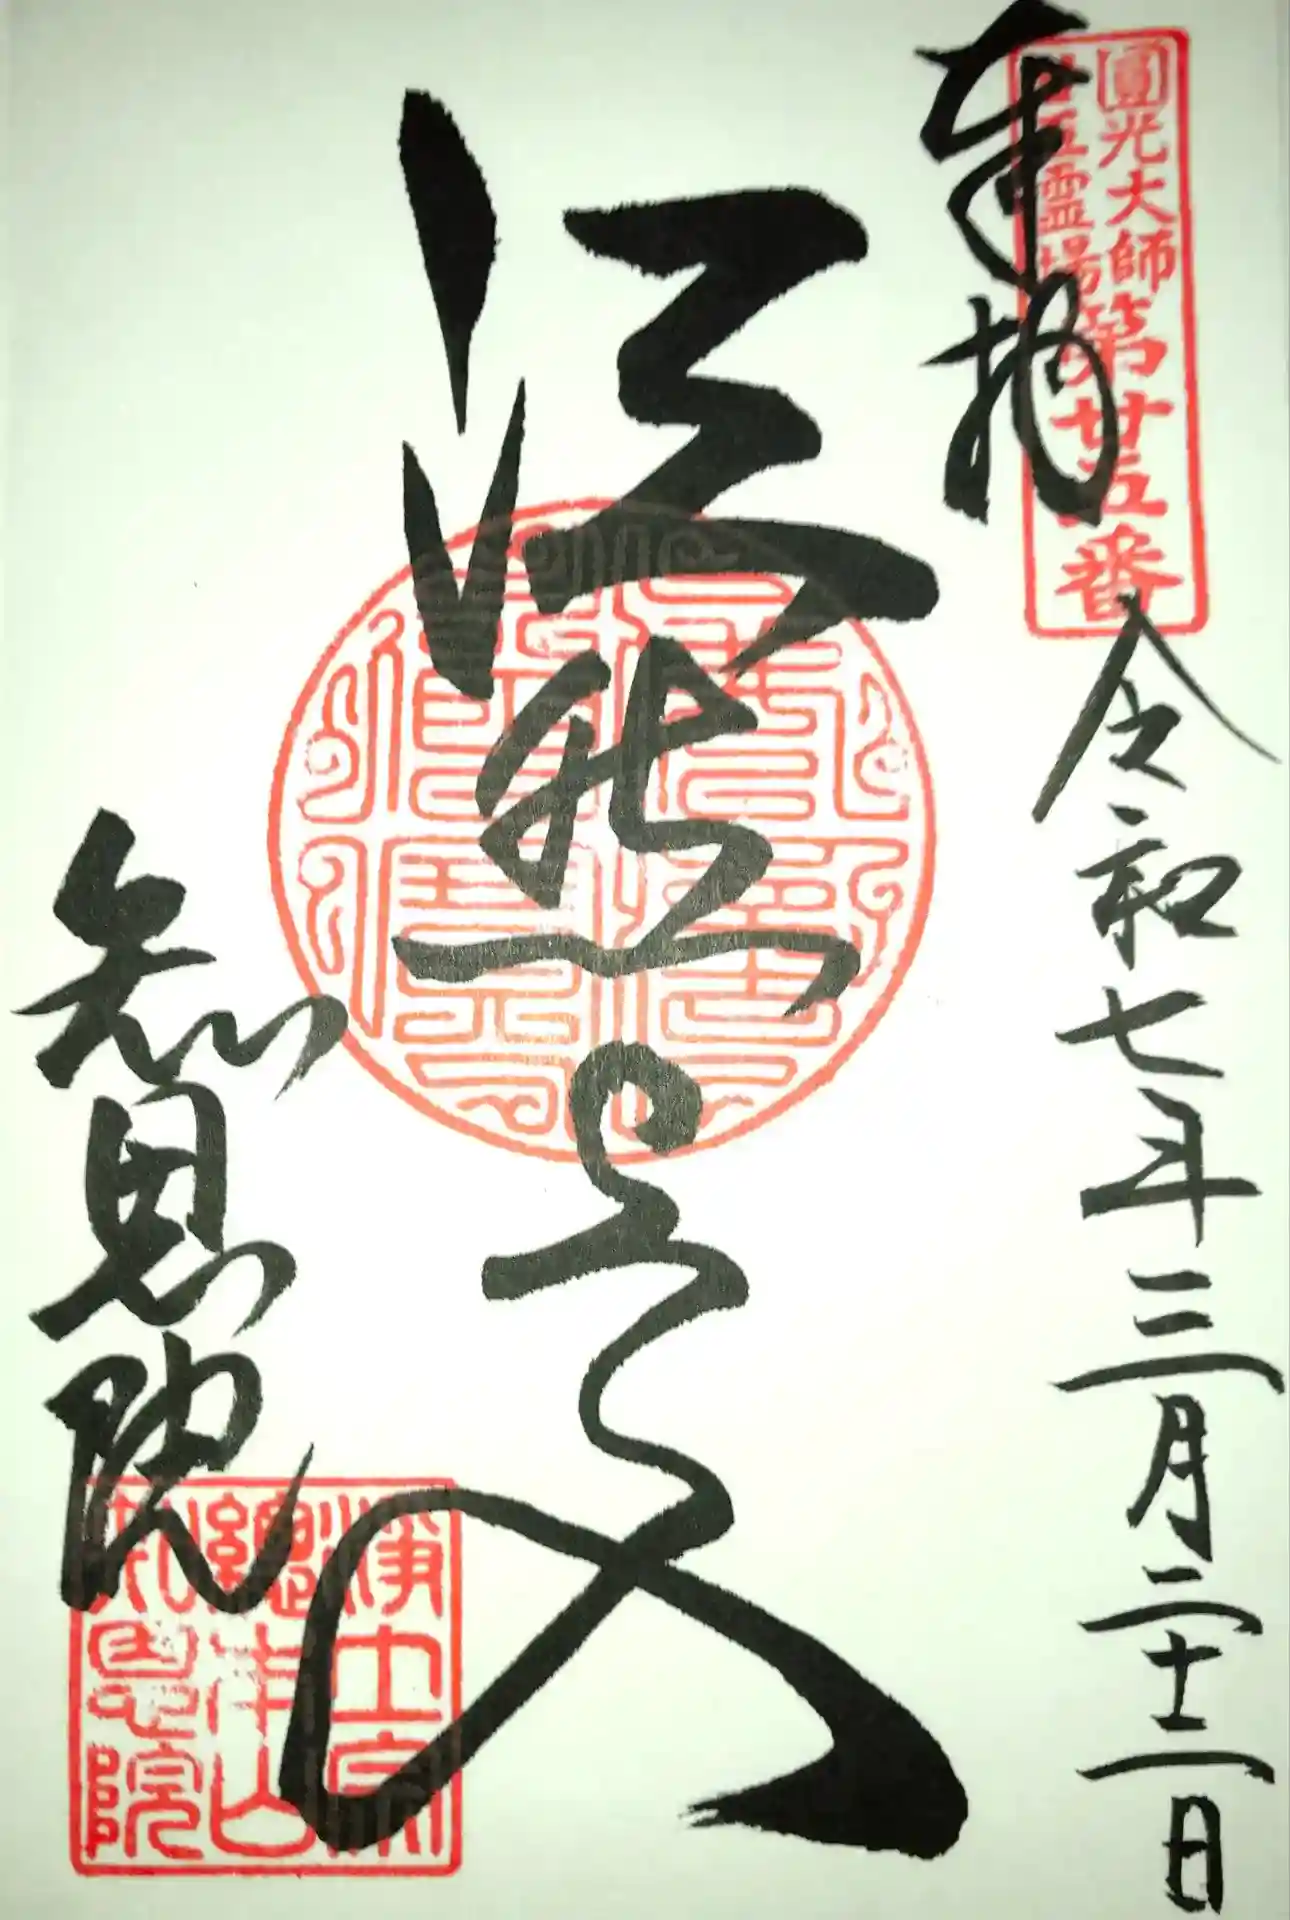 奉拝
圓光大師
廿五霊場
第廿五番
令和七年三月二十二日
法然上人
知恩院
浄土宗
總本山
知恩院